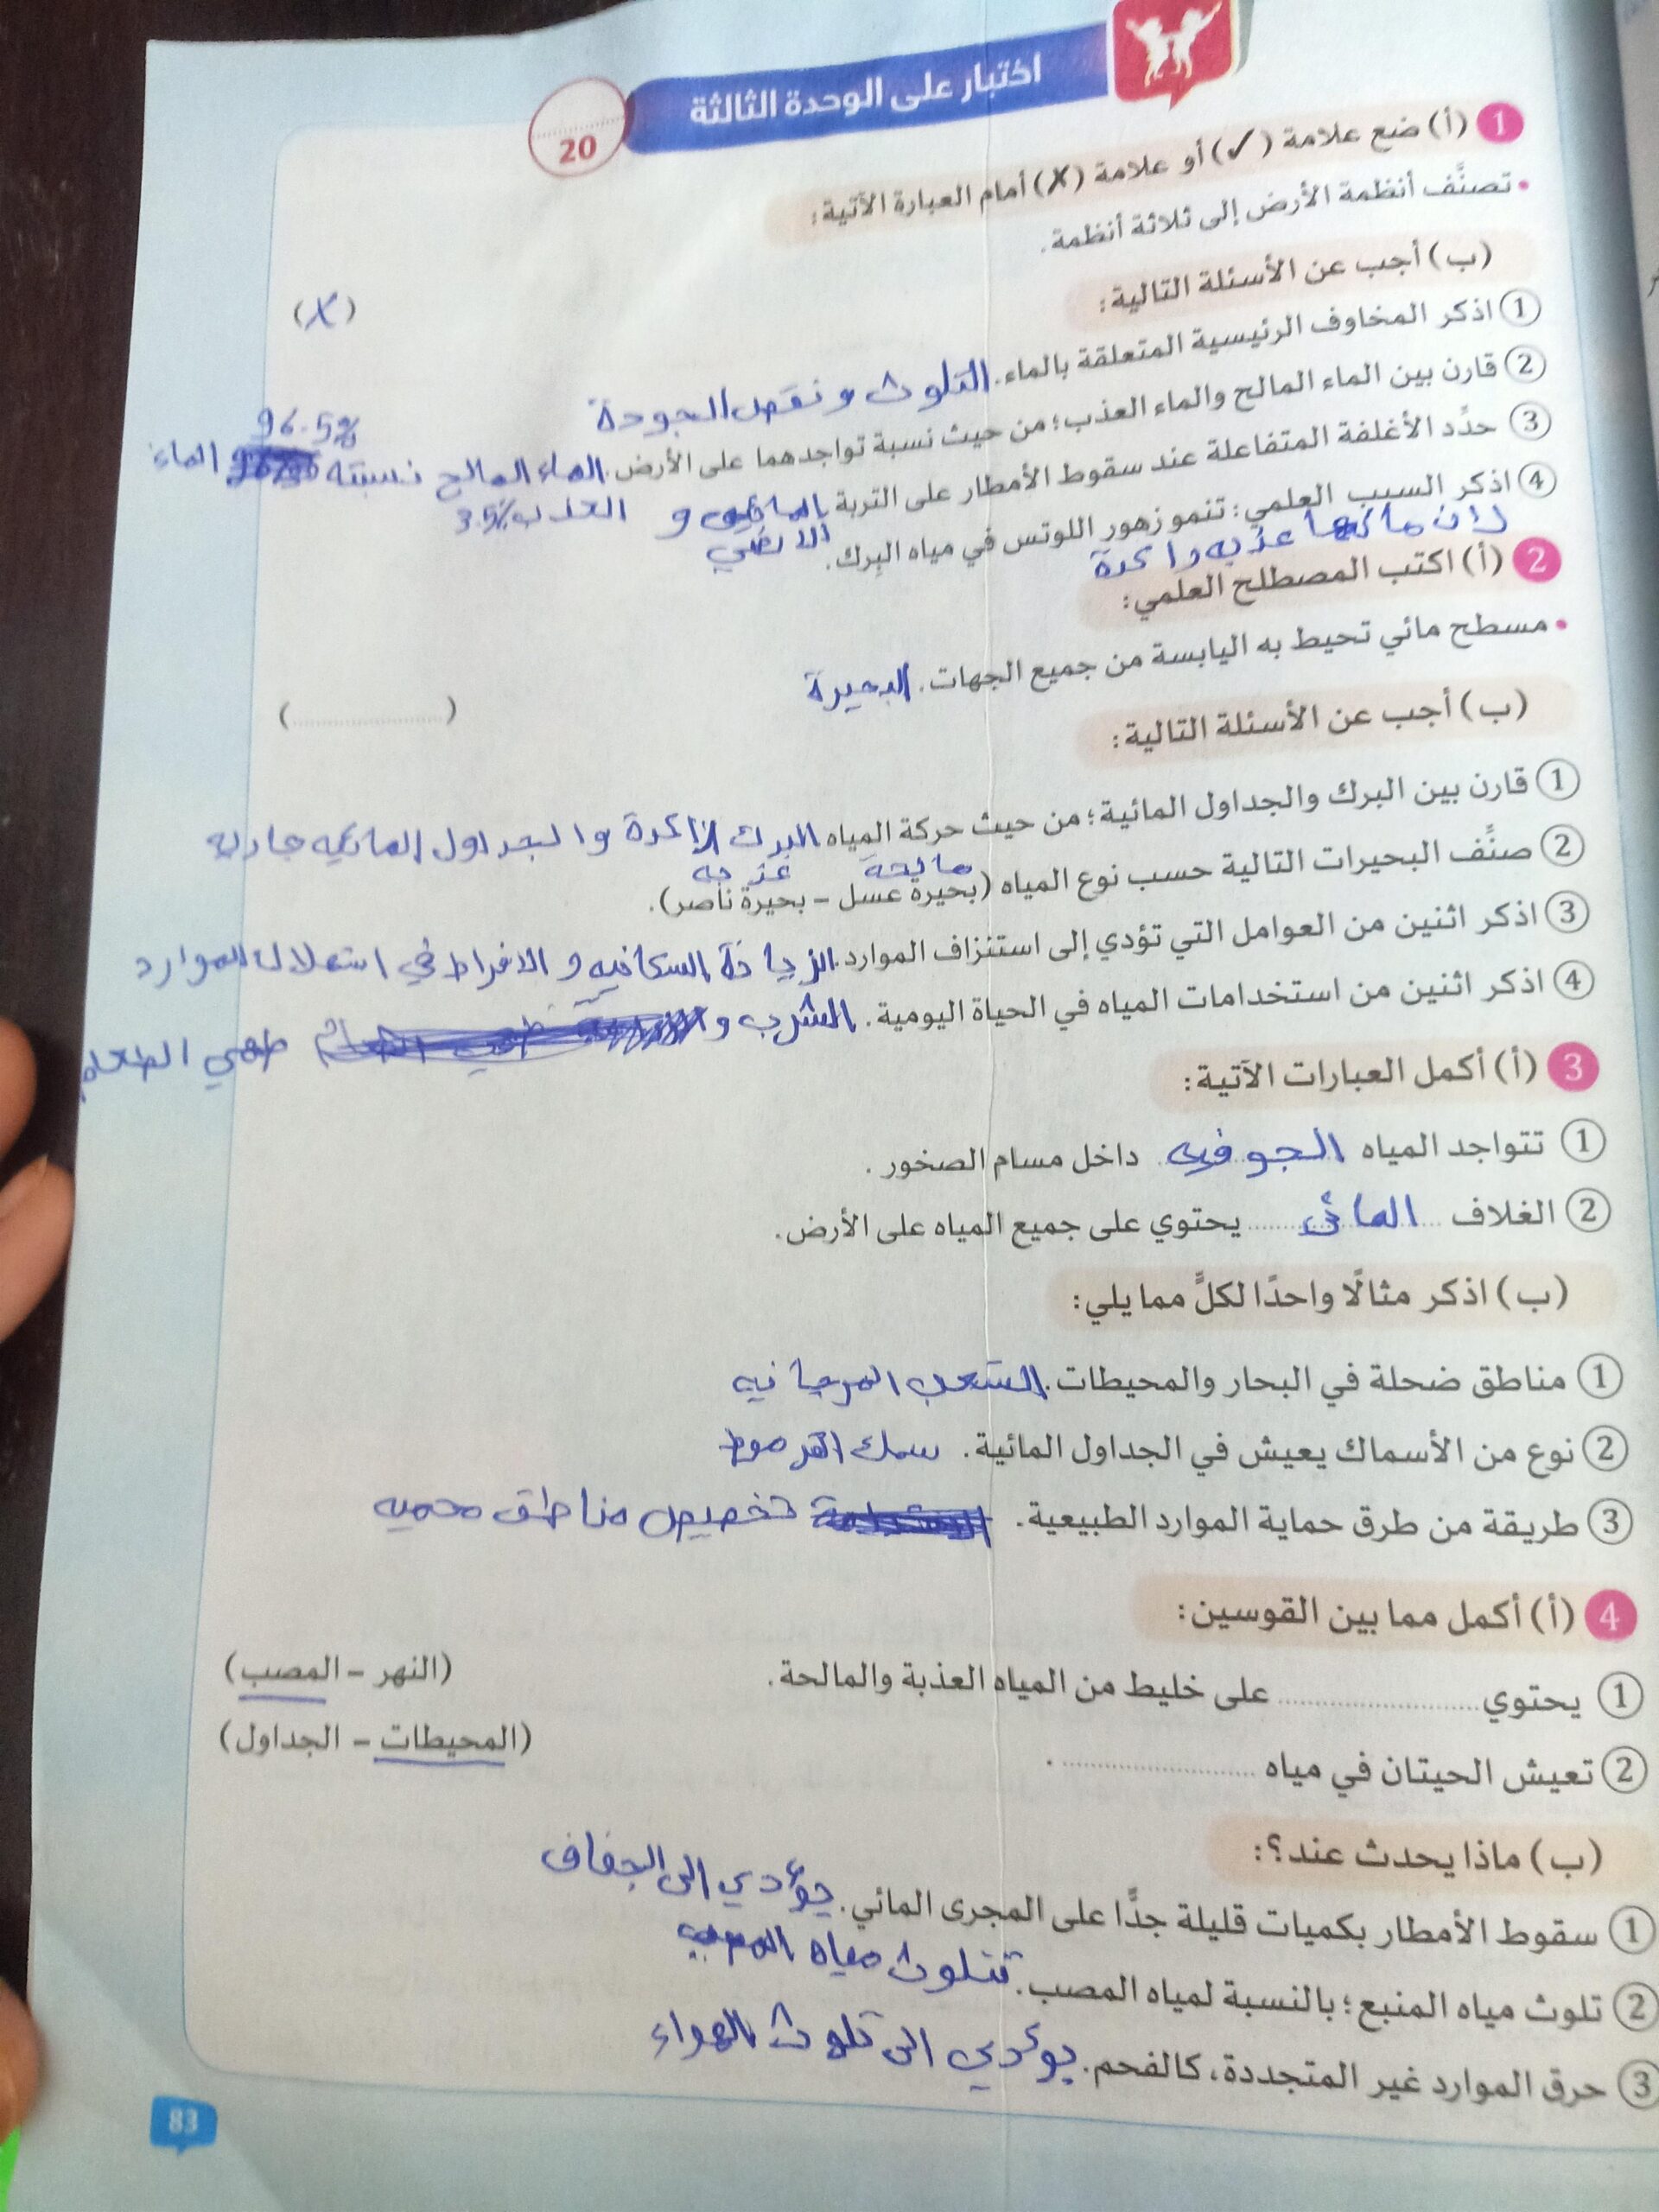 اختبار على الوحدة الثالثة
20
1 (أ) ضع علامة (✓) أو علامة (✗) أمام العبارة الآتية:
• تصنَّف أنظمة الأرض إلى ثلاثة أنظمة. (X)
(ب) أجب عن الأسئلة التالية:
1 اذكر المخاوف الرئيسية المتعلقة بالماء. التلوث ونقص الجودة
2 قارن بين الماء المالح والماء العذب؛ من حيث نسبة تواجدهما على الأرض. الماء المالح نسبته 96.5% الماء
العذب 3.5%
3 حدِّد الأغلفة المتفاعلة عند سقوط الأمطار على التربة المائي و
الارضي
4 اذكر السبب العلمي: تنمو زهور اللوتس في مياه البِرك.
لان مائها عذبه راكدة
2 (أ) اكتب المصطلح العلمي:
• مسطح مائي تحيط به اليابسة من جميع الجهات. البحيرة (..........)
(ب) أجب عن الأسئلة التالية:
1 قارن بين البرك والجداول المائية؛ من حيث حركة المياه البرك راكدة والجداول المائيه جاريه
مالحة عذبه
2 صنِّف البحيرات التالية حسب نوع المياه (بحيرة عسل – بحيرة ناصر).
3 اذكر اثنين من العوامل التي تؤدي إلى استنزاف الموارد. الزيادة السكانيه و الافراط في استغلال الموارد
4 اذكر اثنين من استخدامات المياه في الحياة اليومية. الشرب و طهي الطعام
3 (أ) أكمل العبارات الآتية:
1 تتواجد المياه الجوفيه داخل مسام الصخور.
2 الغلاف المائي يحتوي على جميع المياه على الأرض.
(ب) اذكر مثالًا واحدًا لكلٍّ مما يلي:
1 مناطق ضحلة في البحار والمحيطات. الشعب المرجانيه
2 نوع من الأسماك يعيش في الجداول المائية. سمك القرموط
3 طريقة من طرق حماية الموارد الطبيعية. تخصيص مناطق محميه
4 (أ) أكمل مما بين القوسين:
1 يحتوي .......... على خليط من المياه العذبة والمالحة. (النهر – المصب)
2 تعيش الحيتان في مياه .......... . (المحيطات – الجداول)
(ب) ماذا يحدث عند؟:
1 سقوط الأمطار بكميات قليلة جدًّا على المجرى المائي. يؤدي الى الجفاف
2 تلوث مياه المنبع؛ بالنسبة لمياه المصب. تتلوث مياه المصب
3 حرق الموارد غير المتجددة، كالفحم. يؤدي الى تلوث الهواء
83